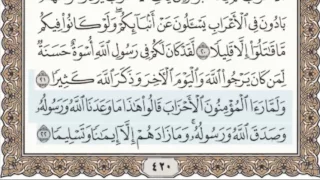 بَادُونَ فِى ٱلْأَعْرَابِ يَسْـَٔلُونَ عَنْ أَنۢبَآئِكُمْ ۖ وَلَوْ كَانُوا۟ فِيكُم
مَّا قَـٰتَلُوٓا۟ إِلَّا قَلِيلًا ٢٠ لَّقَدْ كَانَ لَكُمْ فِى رَسُولِ ٱللَّهِ أُسْوَةٌ حَسَنَةٌ
لِّمَن كَانَ يَرْجُوا۟ ٱللَّهَ وَٱلْيَوْمَ ٱلْـَٔاخِرَ وَذَكَرَ ٱللَّهَ كَثِيرًا ٢١
وَلَمَّا رَءَا ٱلْمُؤْمِنُونَ ٱلْأَحْزَابَ قَالُوا۟ هَـٰذَا مَا وَعَدَنَا ٱللَّهُ وَرَسُولُهُۥ
وَصَدَقَ ٱللَّهُ وَرَسُولُهُۥ ۚ وَمَا زَادَهُمْ إِلَّآ إِيمَـٰنًا وَتَسْلِيمًا ٢٢
٤٢٠